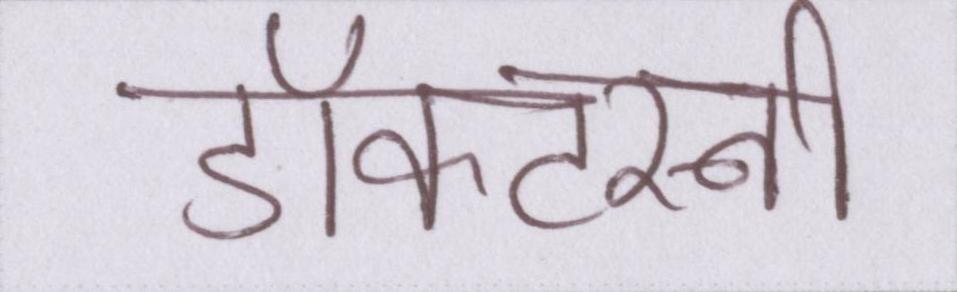 डॉकटरनी